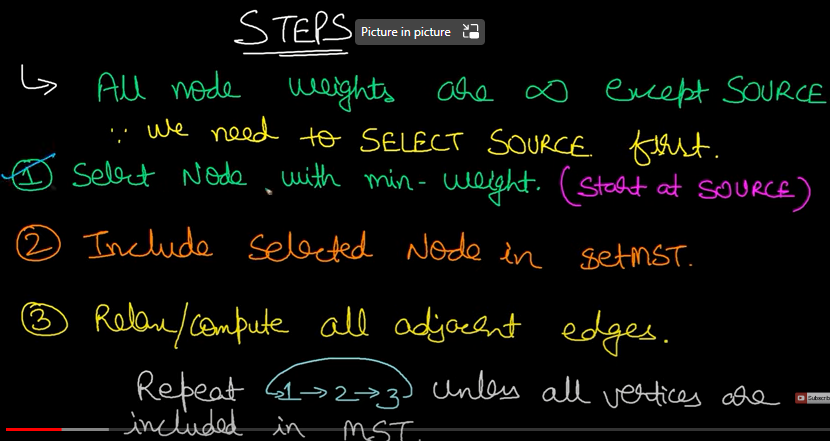 STEPS
Picture in picture
↳ All node weights are ∞ except SOURCE
∵ we need to SELECT SOURCE first.
① Select Node with min-weight. (Start at SOURCE)
② Include Selected Node in setMST.
③ Relax/compute all adjacent edges.
Repeat 1→2→3 unless all vertices are
Subscrib
included in MST.